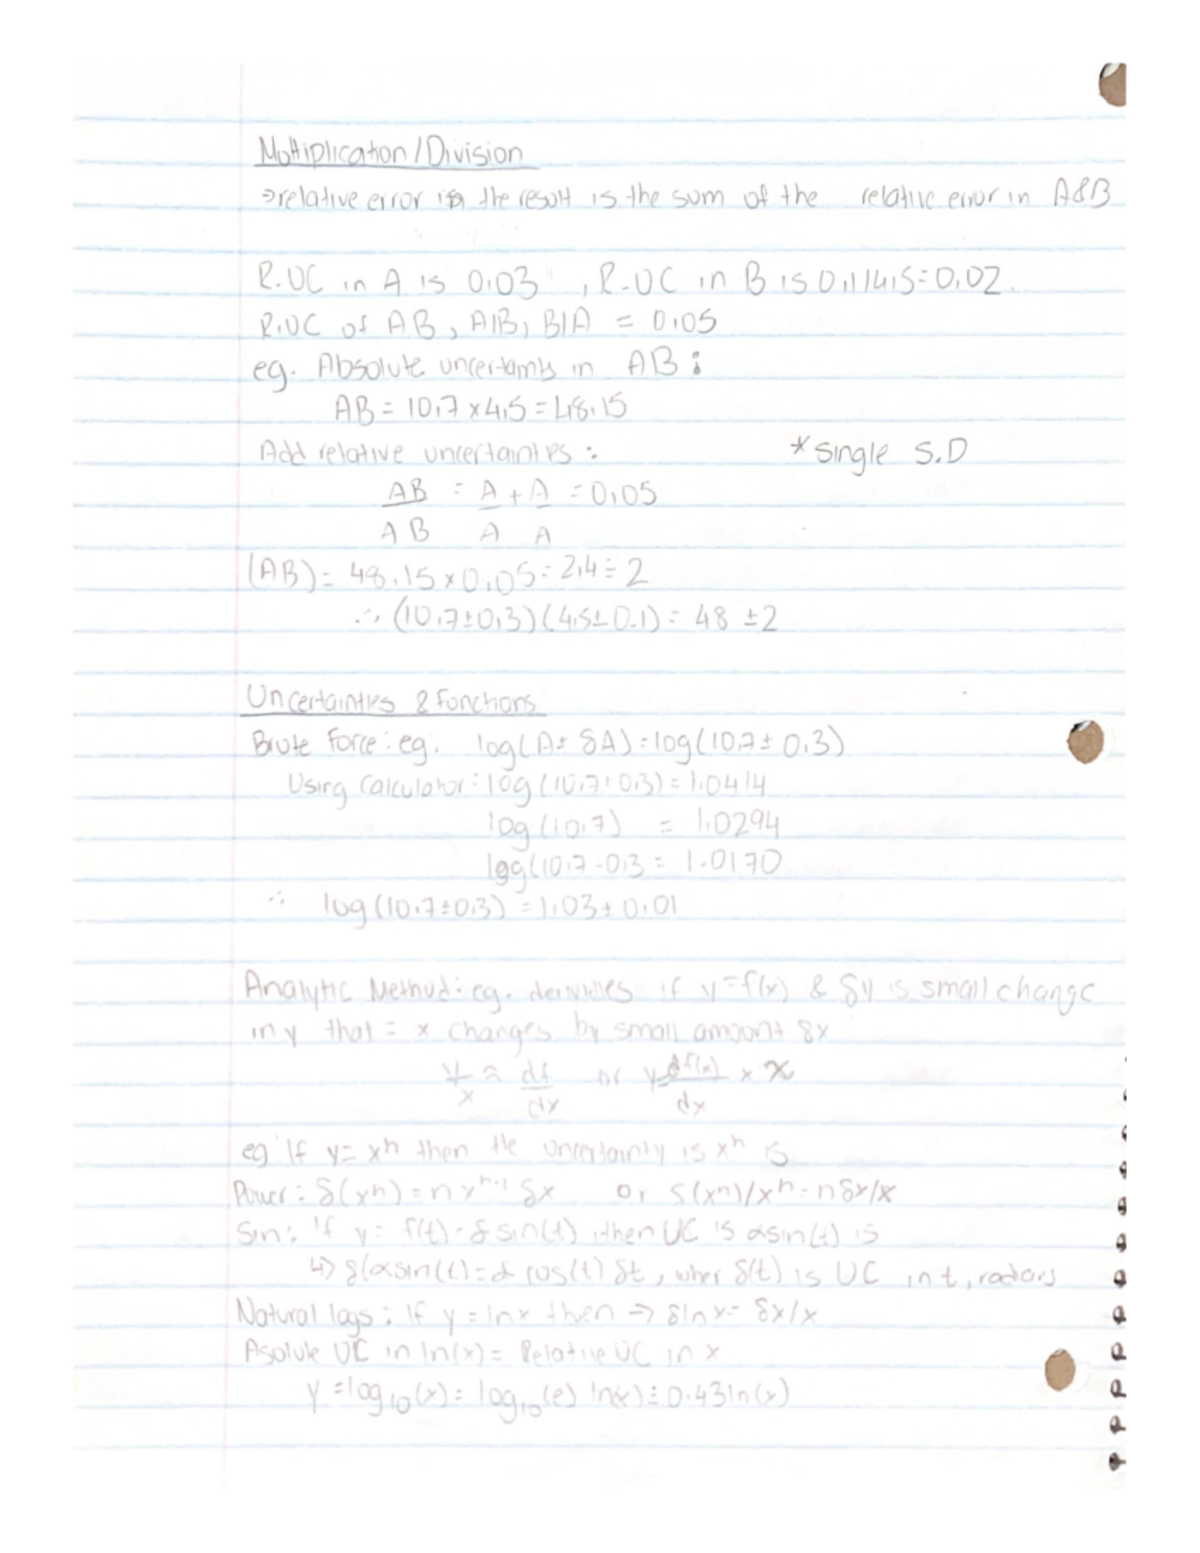 Multiplication/Division
⇒relative error in the result is the sum of the relative error in A&B
R.UC in A is 0.03 , R.UC in B is 0.1/4.5=0.02.
R.UC of AB, A/B, B/A = 0.05
eg. Absolute uncertainty in AB:
AB = 10.7 x 4.5 = 48.15
Add relative uncertainties: * Single S.D
AB = A + A = 0.05
AB A A
(AB) = 48.15 x 0.05 = 2.4 ≐ 2
∴ (10.7±0.3)(4.5±0.1) = 48 ±2
Uncertainties & functions
Brute Force: eg. log(A± δA)=log(10.7± 0.3)
Using Calculator: log (10.7+0.3)=1.0414
log (10.7) = 1.0294
log(10.7-0.3 = 1.0170
∴ log (10.7±0.3) = 1.03± 0.01
Analytic Method: eg. derivatives if y=f(x) & δy is small change
in y that = x changes by small amount δx
y ≈ df or y= df(x) x x
x dx dx
eg If y= xⁿ then the uncertainty is xⁿ is
Power: δ(xⁿ) = n xⁿ⁻¹ δx or δ(xⁿ)/xⁿ = nδx/x
Sin: if y= f(t)= α sin(t) , then UC is αsin(t) is
↳ δ(αsin(t)=α cos(t) δt, wher δ(t) is UC in t, radians
Natural logs: If y = lnx then → δlnx= δx/x
Asolute UC in ln(x)= Relative UC in x
y =log₁₀(x)= log₁₀(e) ln(x)≐ 0.43ln(x)